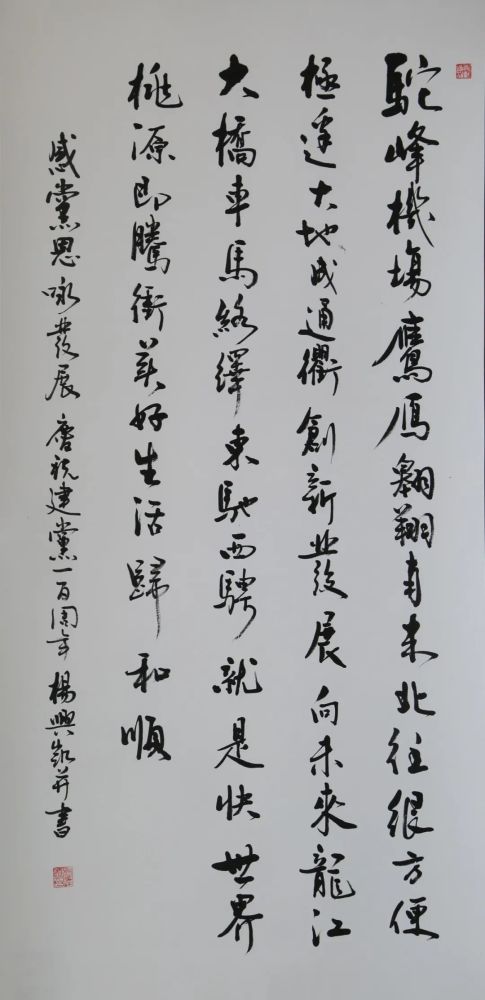 駝峰機場鷹雁翱翔南来北往很方便
極邊大地成通衢創新發展向未來龍江
大橋車馬絡繹東馳西騁就是快世界
桃源即騰衝美好生活歸和順
感黨恩 咏發展 慶祝建黨一百周年 楊興凱并書